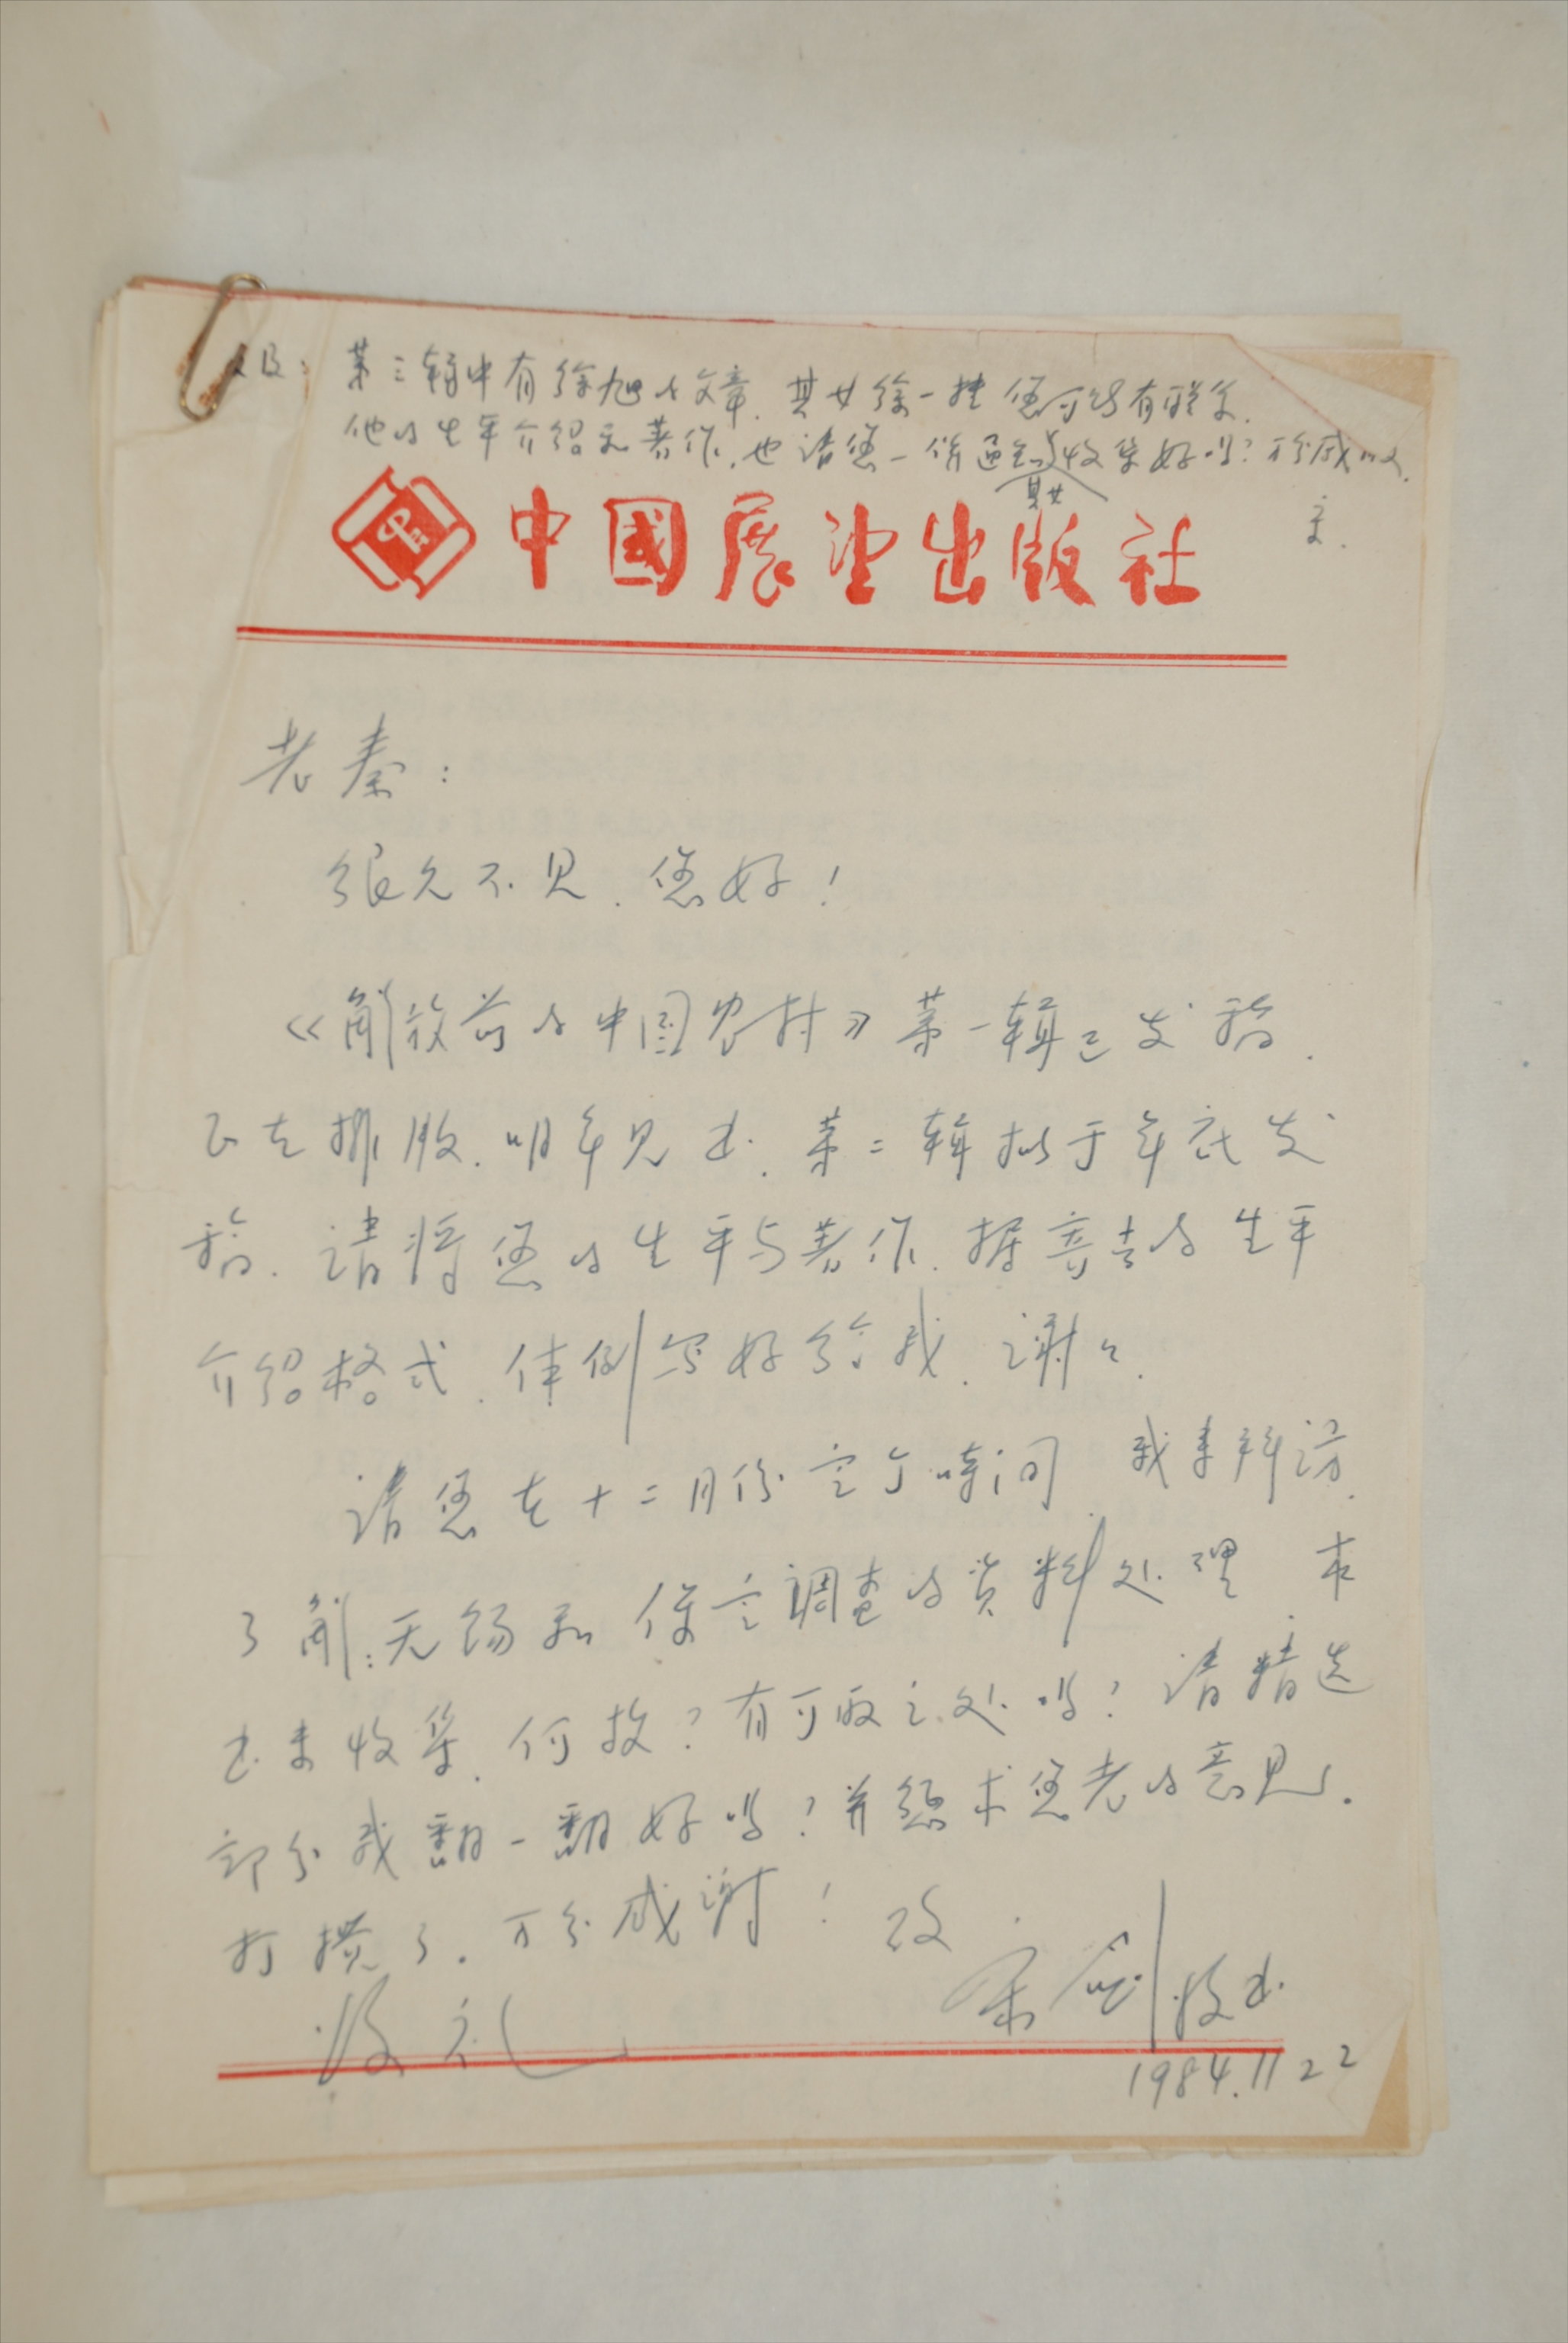 又及：第三辑中有徐旭的文章．其女徐一 您可能有联系．
他的生平介绍和著作．也请您一併通过其女收集好吗？万分感激．
中國展望出版社
老秦：
很久不见．您好！
《解放前的中国农村》第一辑已发稿．
正在排版．明年见书．第二辑拟于年底发
稿．请将您的生平与著作．据 的生平
介绍格式．体例写好给我．谢々．
请您在十二月份定个时间．我来拜访．
了解：无锡和保定调查的资料处理．未
出未收集．何故？有可取之处吗？请精选
部分我翻一翻好吗？并 求您老的意见．
打搅了．万分感谢！致
敬礼 敬上
1984.11 22